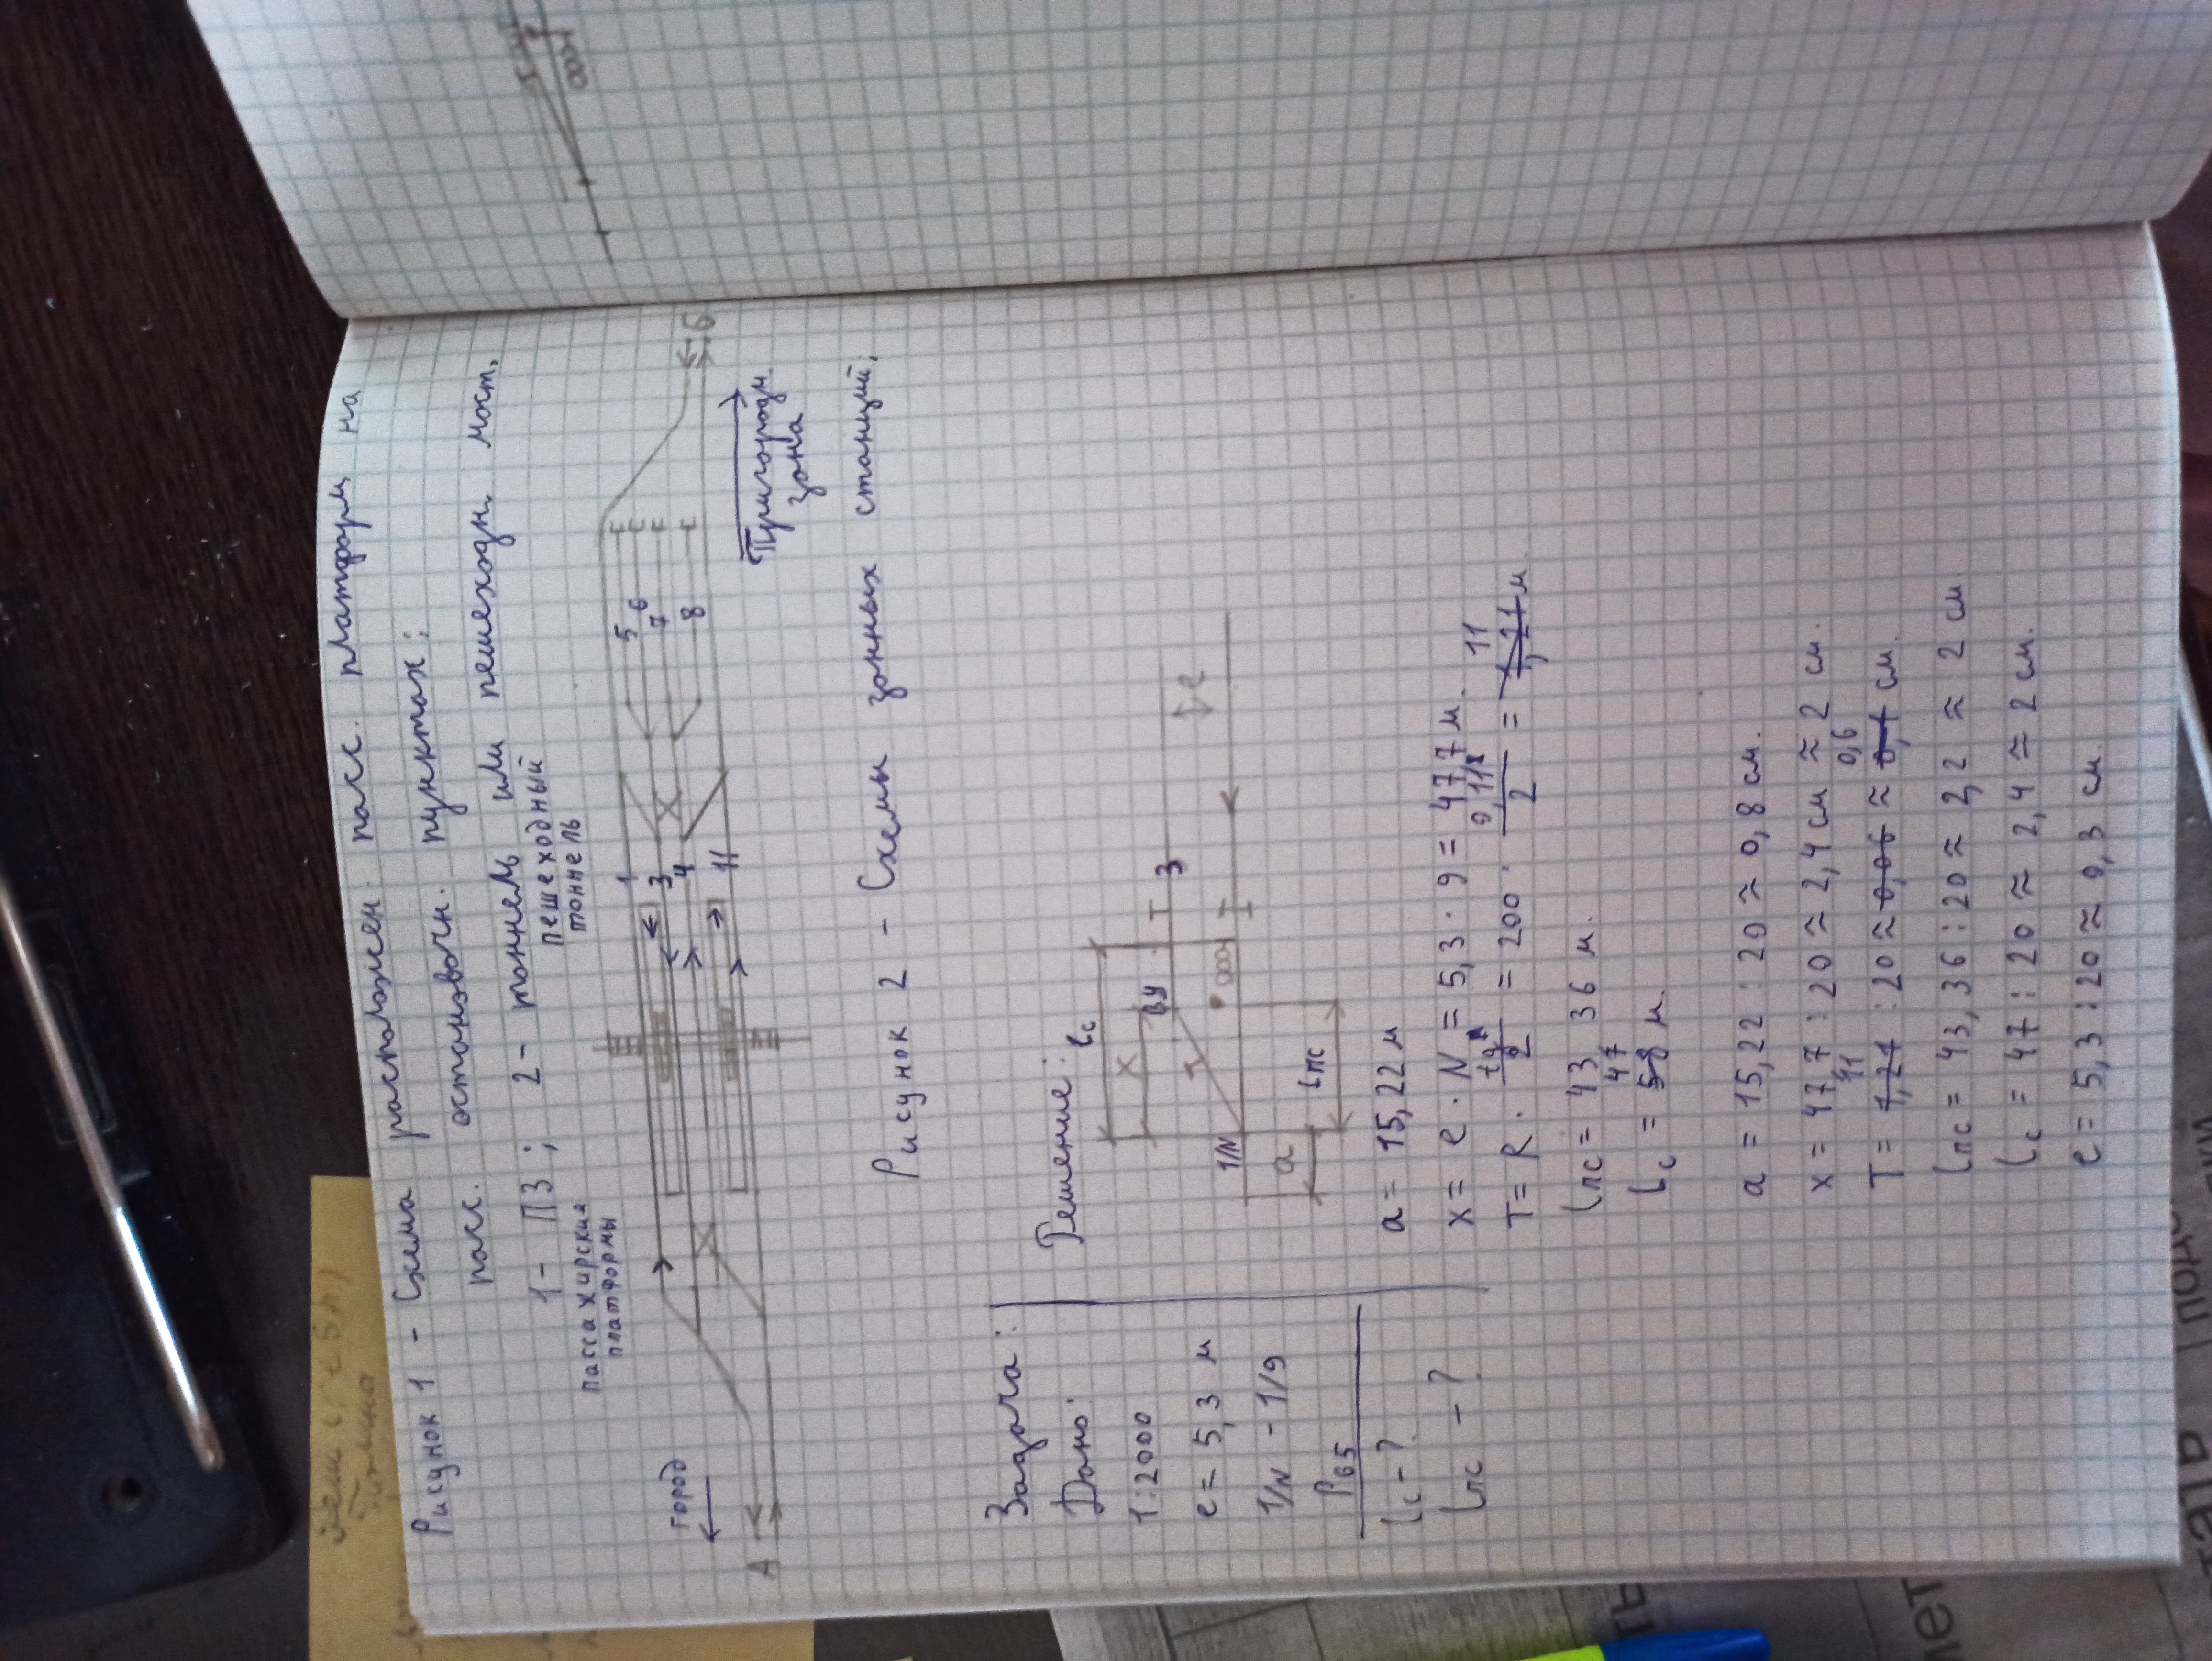 Рисунок 1 - Схема расположен. пасс. платформ на
пасс. остановочн. пунктах:
1 - ПЗ; 2 - тоннель или пешеходн. мост.
пассажирския
платформы
пешеходный
тоннель
город
А
1
3
4
11
5
6
7
8
Б
Пригородн.
зона
Рисунок 2 - Схемы зонных станций;
Задача:
Дано:
1:2000
e = 5,3 м
1/N - 1/9
Р65
Lс - ?
Lпс - ?
Решение:
Lс
X
ВУ
T
3
e
1/N
a
Lпс
a = 15,22 м
x = e · N = 5,3 · 9 = 47,7 м.
T = R · tg α/2 = 200 · 0,11/2 = 1,21 м. 11
Lпс = 43,36 м.
Lс = 58 м. 47
a = 15,22 : 20 ≈ 0,8 см.
x = 47,7 : 20 ≈ 2,4 см ≈ 2 см.
T = 1,21 : 20 ≈ 0,06 ≈ 0,1 см. 11 0,6
Lпс = 43,36 : 20 ≈ 2,2 ≈ 2 см
Lс = 47 : 20 ≈ 2,4 ≈ 2 см.
e = 5,3 : 20 ≈ 0,3 см.